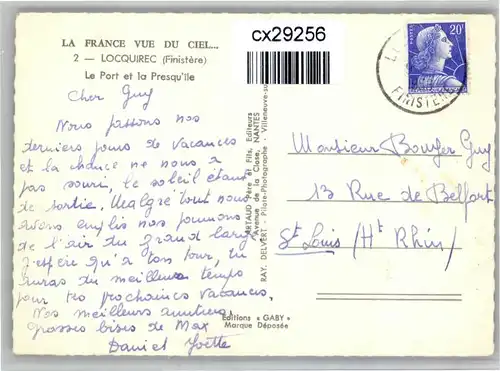 LA FRANCE VUE DU CIEL...
2 — LOCQUIREC (Finistère)
Le Port et la Presqu'ile
cx29256
20F
FINISTERE
Cher Guy
Nous passons nos
derniers jours de vacances
et la chance ne nous a
pas souri, le soleil étant
de sortie. Malgré tout nous
avons emplis nos poumons
de l'air du grand large
J'espère qu'à ton tour, tu
auras du meilleur temps
pour tes prochaines vacances.
Nos meilleurs amitiés,
grosses bises de Max
Daniel Yvette
ARTAUD Père et Fils, Editeurs
Avenue de la Close, NANTES
RAY. DELVERT - Pilote-Photographe - Villeneuve-su
Editions « GABY »
Marque Déposée
Monsieur Bouyer Guy
13 Rue de Belfort
St Louis (Ht Rhin)